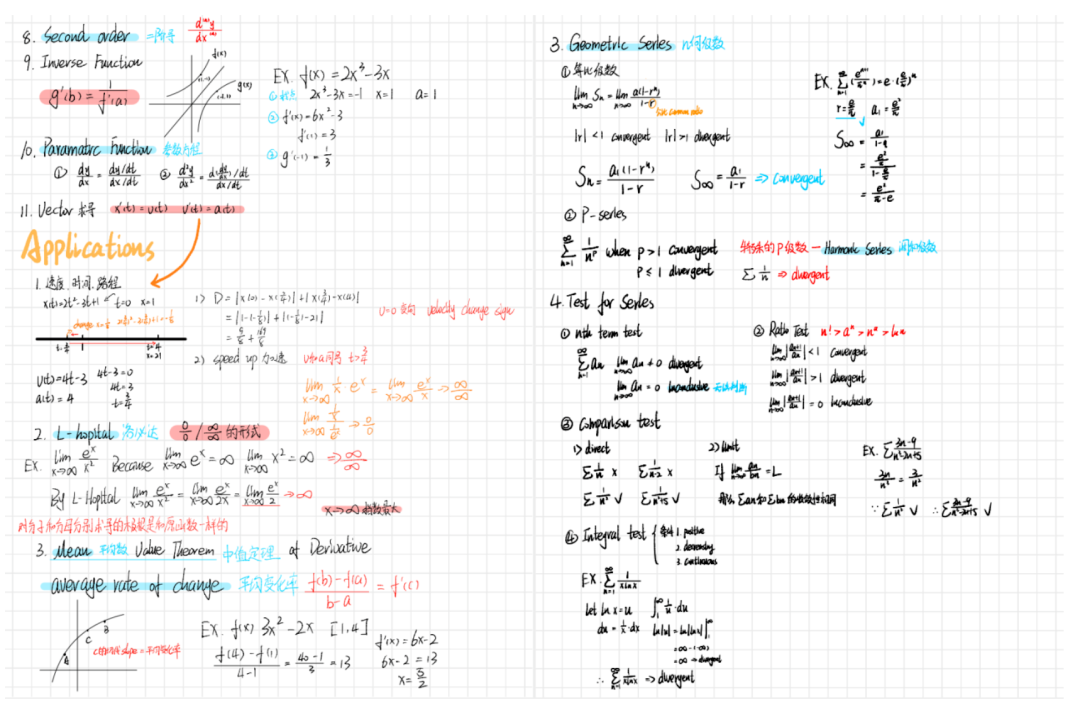 8. Second order =阶导 d⁽ⁿ⁾y/dx⁽ⁿ⁾
9. Inverse Function
g'(b) = 1/f'(a)
f(x)
g(x)
EX. f(x) = 2x³-3x
① 找点 2x³-3x=-1 x=1 a=1
② f'(x)=6x²-3
f'(1)=3
③ g'(-1)=1/3
10. Paramatric Function 参数方程
① dy/dx = (dy/dt)/(dx/dt) ② d²y/dx² = (d(dy/dx)/dt)/(dx/dt)
11. Vector 求导 x'(t)=v(t) v'(t)=a(t)
Applications
1. 速度.时间.路程
x(t)=2t²-3t+1 t=0 x=1
v(t)=4t-3 4t-3=0
a(t)=4 4t=3
t=3/4
1) D=|x(0)-x(3/4)|+|x(3/4)-x(4)|
=|1-(-1/8)|+|(-1/8)-21|
=9/8+169/8
v=0 变向 velocity change sign
2) speed up 加速 v和a同号 t>3/4
lim x→∞ 1/x e^x = lim x→∞ e^x/x → ∞/∞
2. L-hopital 洛必达 0/0 / ∞/∞ 的形式
EX. lim x→∞ e^x/x² Because lim x→∞ e^x=∞ lim x→∞ x²=∞ ⇒ ∞/∞
By L-Hopital lim x→∞ e^x/x² = lim x→∞ e^x/2x = lim x→∞ e^x/2 → ∞
x→∞ 指数最大
对分子和分母分别求导的极限是和原函数一样的
3. Mean 平均数 Value Theorem 中值定理 of Derivative
average rate of change 平均变化率 (f(b)-f(a))/(b-a) = f'(c)
A
C
B
EX. f(x) 3x²-2x [1,4]
(f(4)-f(1))/(4-1) = (40-1)/3 = 13
f'(x)=6x-2
6x-2=13
x=5/2
3. Geometric Series 几何级数
① 等比级数
lim n→∞ Sn = lim n→∞ a(1-rⁿ)/(1-r)
|r|<1 convergent |r|>1 divergent
Sn = a₁(1-rⁿ)/(1-r) S∞ = a₁/(1-r) ⇒ convergent
r=e/π a₁=e²/π
S∞ = a₁/(1-r)
= (e²/π)/(1-e/π)
= e²/(π-e)
② P-series
∞ Σ n=1 1/nᵖ when p>1 convergent
p≤1 divergent
特殊的P级数 — Harmonic Series 调和级数
Σ 1/n ⇒ divergent
4. Test for Series
① nth term test
∞ Σ n=1 an lim n→∞ an≠0 divergent
lim n→∞ an=0 Inconclusive 无法判断
② Ratio Test n!>aⁿ>nᵃ>lnn
lim n→∞ |an+1/an|<1 convergent
lim n→∞ |an+1/an|>1 divergent
lim n→∞ |an+1/an|=0 Inconclusive
③ Comparison test
1) direct
Σ 1/n x Σ 1/(n-2) x
Σ 1/n² √ Σ 1/(n²+5) √
2) limit
If lim n→∞ an/bn = L
那么Σan和Σbn的收敛性相同
EX. Σ (3n-9)/(n³-2n+5)
3n/n³ = 3/n²
∵ Σ 1/n² √ ∴ Σ (3n-9)/(n³-2n+5) √
④ Integral test { 条件 1. positive
2. decreasing
3. continuous
EX. ∞ Σ n=1 1/(xlnx)
let ln x=u ∫ 1/u · du
du=1/x·dx
=∞-(-∞)
=∞ → divergent
∴ ∞ Σ n=1 1/(xlnx) ⇒ divergent